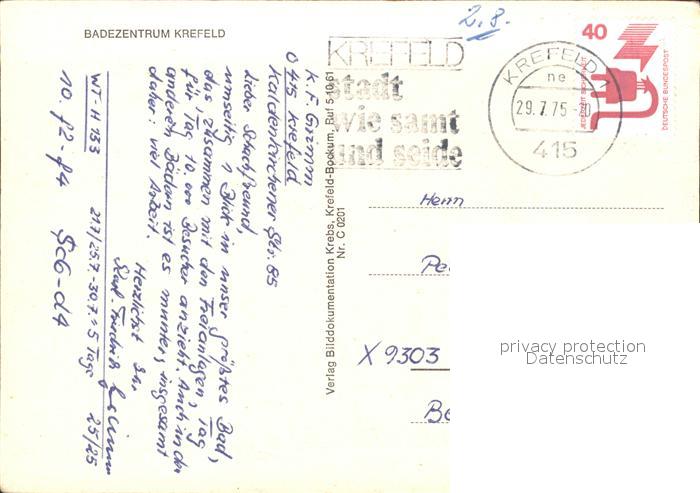 BADEZENTRUM KREFELD
K. F. Grimm
415 Krefeld
Str. 85
Lieber Schachfreund,
umseitig 1 Blick in unser größtes Bad,
das zusammen mit den Freianlagen, Tag
für Tag 10.000 Besucher anzieht. Auch in den
anderen Bädern ist es munter, insgesamt
daher: viel Arbeit.
Herzlichst Ihr
Karl-Friedrich Grimm
WT-H 133
21.7/25.7-30.7 = 5 Tage 25/25
10. f2-f4 Sc6-d4
Verlag Bilddokumentation Krebs, Krefeld-Bockum, Ruf 5 10 61
Nr. C 0201
2.8.
KREFELD
stadt
wie samt
und seide
KREFELD 1
ne
29.7.75
415
40
JEDERZEIT SICHERHEIT
DEUTSCHE BUNDESPOST
Herrn
Pe
X 9303
Be
privacy protection
Datenschutz